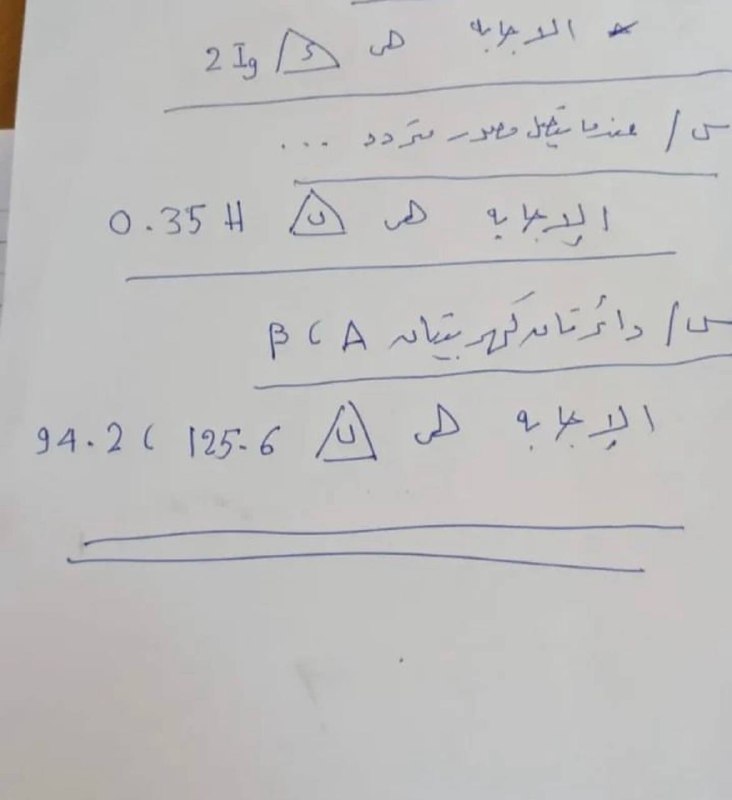 * الاجابه هى د 2 Ig
س / عندما يتصل مصدر متردد ...
الإجابه هى ب 0.35 H
س / دائرتان كهربيتان A ، B
الإجابه هى ب 125.6 ، 94.2